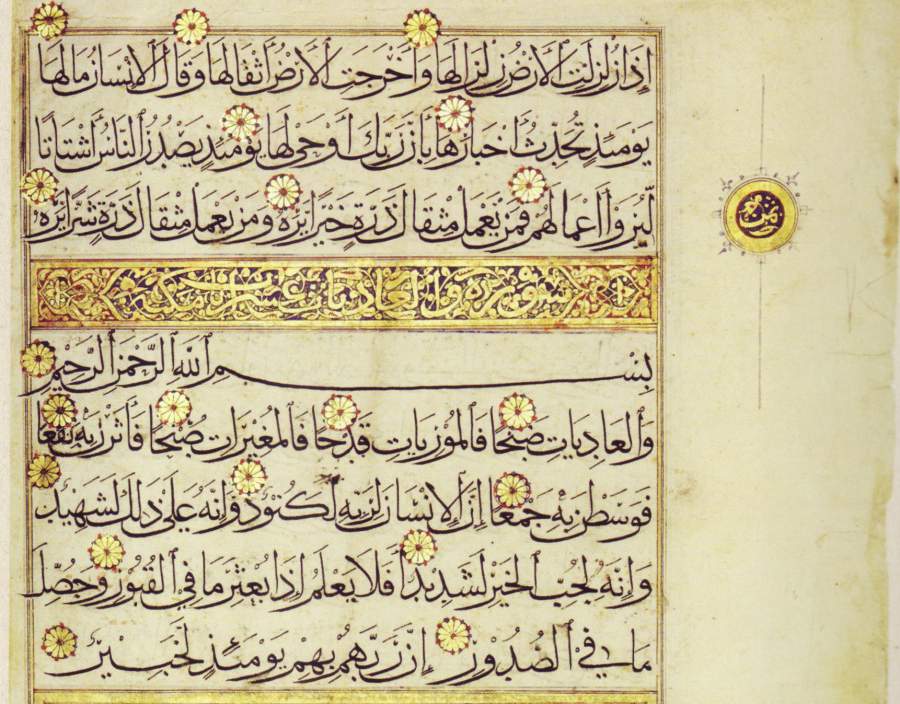 إِذَا زُلْزِلَتِ الْأَرْضُ زِلْزَالَهَا وَأَخْرَجَتِ الْأَرْضُ أَثْقَالَهَا وَقَالَ الْإِنْسَانُ مَا لَهَا
يَوْمَئِذٍ تُحَدِّثُ أَخْبَارَهَا بِأَنَّ رَبَّكَ أَوْحَىٰ لَهَا يَوْمَئِذٍ يَصْدُرُ النَّاسُ أَشْتَاتًا
لِّيُرَوْا أَعْمَالَهُمْ فَمَنْ يَعْمَلْ مِثْقَالَ ذَرَّةٍ خَيْرًا يَرَهُ وَمَنْ يَعْمَلْ مِثْقَالَ ذَرَّةٍ شَرًّا يَرَهُ
سورة والعاديات عشر مكية
بِسْمِ اللَّهِ الرَّحْمَٰنِ الرَّحِيمِ
وَالْعَادِيَاتِ ضَبْحًا فَالْمُورِيَاتِ قَدْحًا فَالْمُغِيرَاتِ صُبْحًا فَأَثَرْنَ بِهِ نَقْعًا
فَوَسَطْنَ بِهِ جَمْعًا إِنَّ الْإِنْسَانَ لِرَبِّهِ لَكَنُودٌ وَإِنَّهُ عَلَىٰ ذَٰلِكَ لَشَهِيدٌ
وَإِنَّهُ لِحُبِّ الْخَيْرِ لَشَدِيدٌ أَفَلَا يَعْلَمُ إِذَا بُعْثِرَ مَا فِي الْقُبُورِ وَحُصِّلَ
مَا فِي الصُّدُورِ إِنَّ رَبَّهُمْ بِهِمْ يَوْمَئِذٍ لَخَبِيرٌ